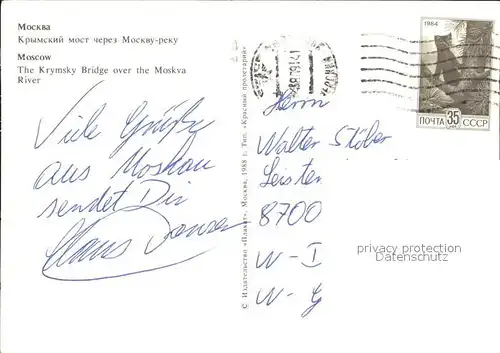 Москва
Крымский мост через Москву-реку
Moscow
The Krymsky Bridge over the Moskva
River
Viele Grüße
aus Moskau
sendet Dir
Klaus
© Издательство «Плакат», Москва, 1988 г. Тип. «Красный пролетарий»
1984
ПОЧТА 35 СССР
Herrn
Walter Stöber
Leisten
8700
W-I
W-G
privacy protection
Datenschutz